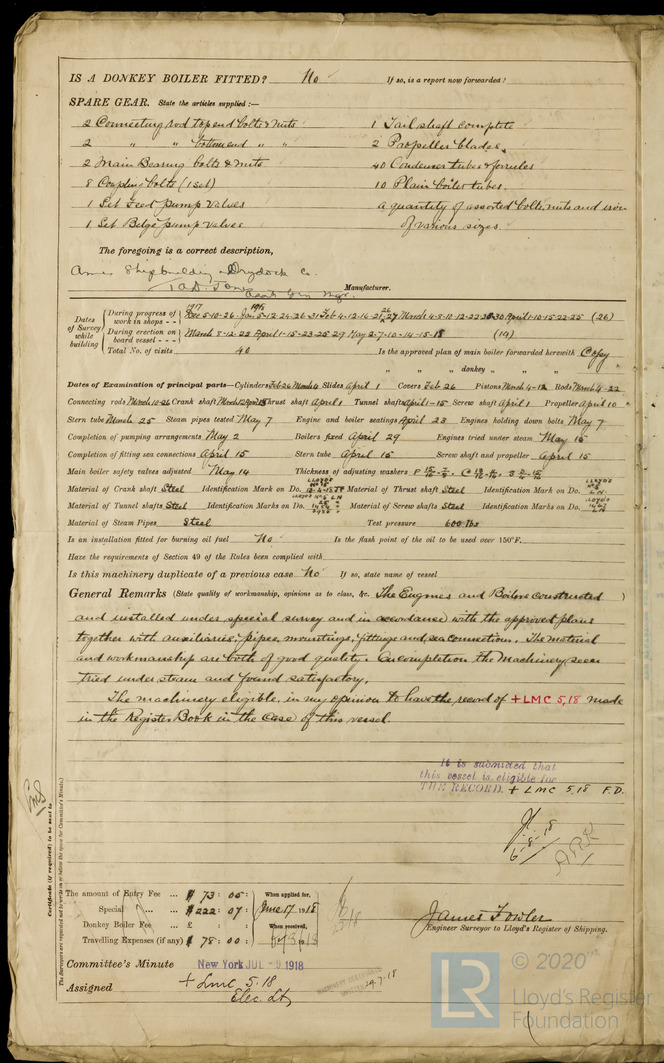 IS A DONKEY BOILER FITTED? No If so, is a report now forwarded?
SPARE GEAR. State the articles supplied :—
2 Connecting rod top end bolts & nuts 1 Tail shaft complete
2 " " bottom end " " 2 Propeller blades.
2 Main Bearing bolts & nuts 40 Condenser tubes & ferrules
8 Coupling bolts (1 set) 10 Plain boiler tubes.
1 Set Feed pump valves a quantity of assorted bolts, nuts and iron
1 Set Belge pump valves of various sizes.
The foregoing is a correct description,
Amer Shipbuilding & Drydock Co.
Manufacturer.
Dates of Survey while building
During progress of work in shops - - 1917 Dec 5-10-26 Jan 5-12-24-26-31 Feb 4-12-16-21-27 March 4-8-10-12-22 30 April 1-10-15-22-25 (26)
During erection on board vessel - - - March 8-12-22 April 1-15-23-25 29 May 2-7-10-14-15-18 (14)
Total No. of visits 40 Is the approved plan of main boiler forwarded herewith Copy
" " " donkey " " "
Dates of Examination of principal parts—Cylinders Feb 26 March 4 Slides April 1 Covers Feb 26 Pistons March 4-12 Rods March 4-22
Connecting rods March 10-26 Crank shaft March 12 April 15 Thrust shaft April 1 Tunnel shafts April 1-15 Screw shaft April 1 Propeller April 10
Stern tube March 25 Steam pipes tested May 7 Engine and boiler seatings April 23 Engines holding down bolts May 7
Completion of pumping arrangements May 2 Boilers fixed April 29 Engines tried under steam May 15
Completion of fitting sea connections April 15 Stern tube April 15 Screw shaft and propeller April 15
Main boiler safety valves adjusted May 14 Thickness of adjusting washers
Material of Crank shaft Steel Identification Mark on Do. Material of Thrust shaft Steel Identification Mark on Do.
Material of Tunnel shafts Steel Identification Marks on Do. Material of Screw shafts Steel Identification Marks on Do.
Material of Steam Pipes Steel Test pressure 600 lbs
Is an installation fitted for burning oil fuel No Is the flash point of the oil to be used over 150°F.
Have the requirements of Section 49 of the Rules been complied with
Is this machinery duplicate of a previous case No If so, state name of vessel
General Remarks (State quality of workmanship, opinions as to class, &c. The Engines and Boilers constructed
and installed under special survey and in accordance with the approved plans
together with auxiliaries, pipes, mountings, fittings and sea connections. The material
and workmanship are both of good quality. On completion the Machinery seen
tried under steam and found satisfactory.
The machinery eligible, in my opinion to have the record of + LMC 5,18 made
in the Register Book in the case of this vessel.
It is submitted that
this vessel is eligible for
THE RECORD. + LMC 5.18 F.D.
6-8-18
Certificate (if required) to be sent to
The Surveyors are requested not to write on or below the space for Committee's Minute.
The amount of Entry Fee ... $ 73 : 05 : When applied for,
Special " ... $ 222 : 07 : June 17 1918
Donkey Boiler Fee ... £ : : When received,
Travelling Expenses (if any) $ 75 : 00 :
James Fowler
Engineer Surveyor to Lloyd's Register of Shipping.
Committee's Minute New York JUL - 9 1918
Assigned + LMC 5.18
Elec. Lt.
MACHINERY CERTIFICATE
WRITTEN 24.7.18
LR © 2020
Lloyd's Register
Foundation